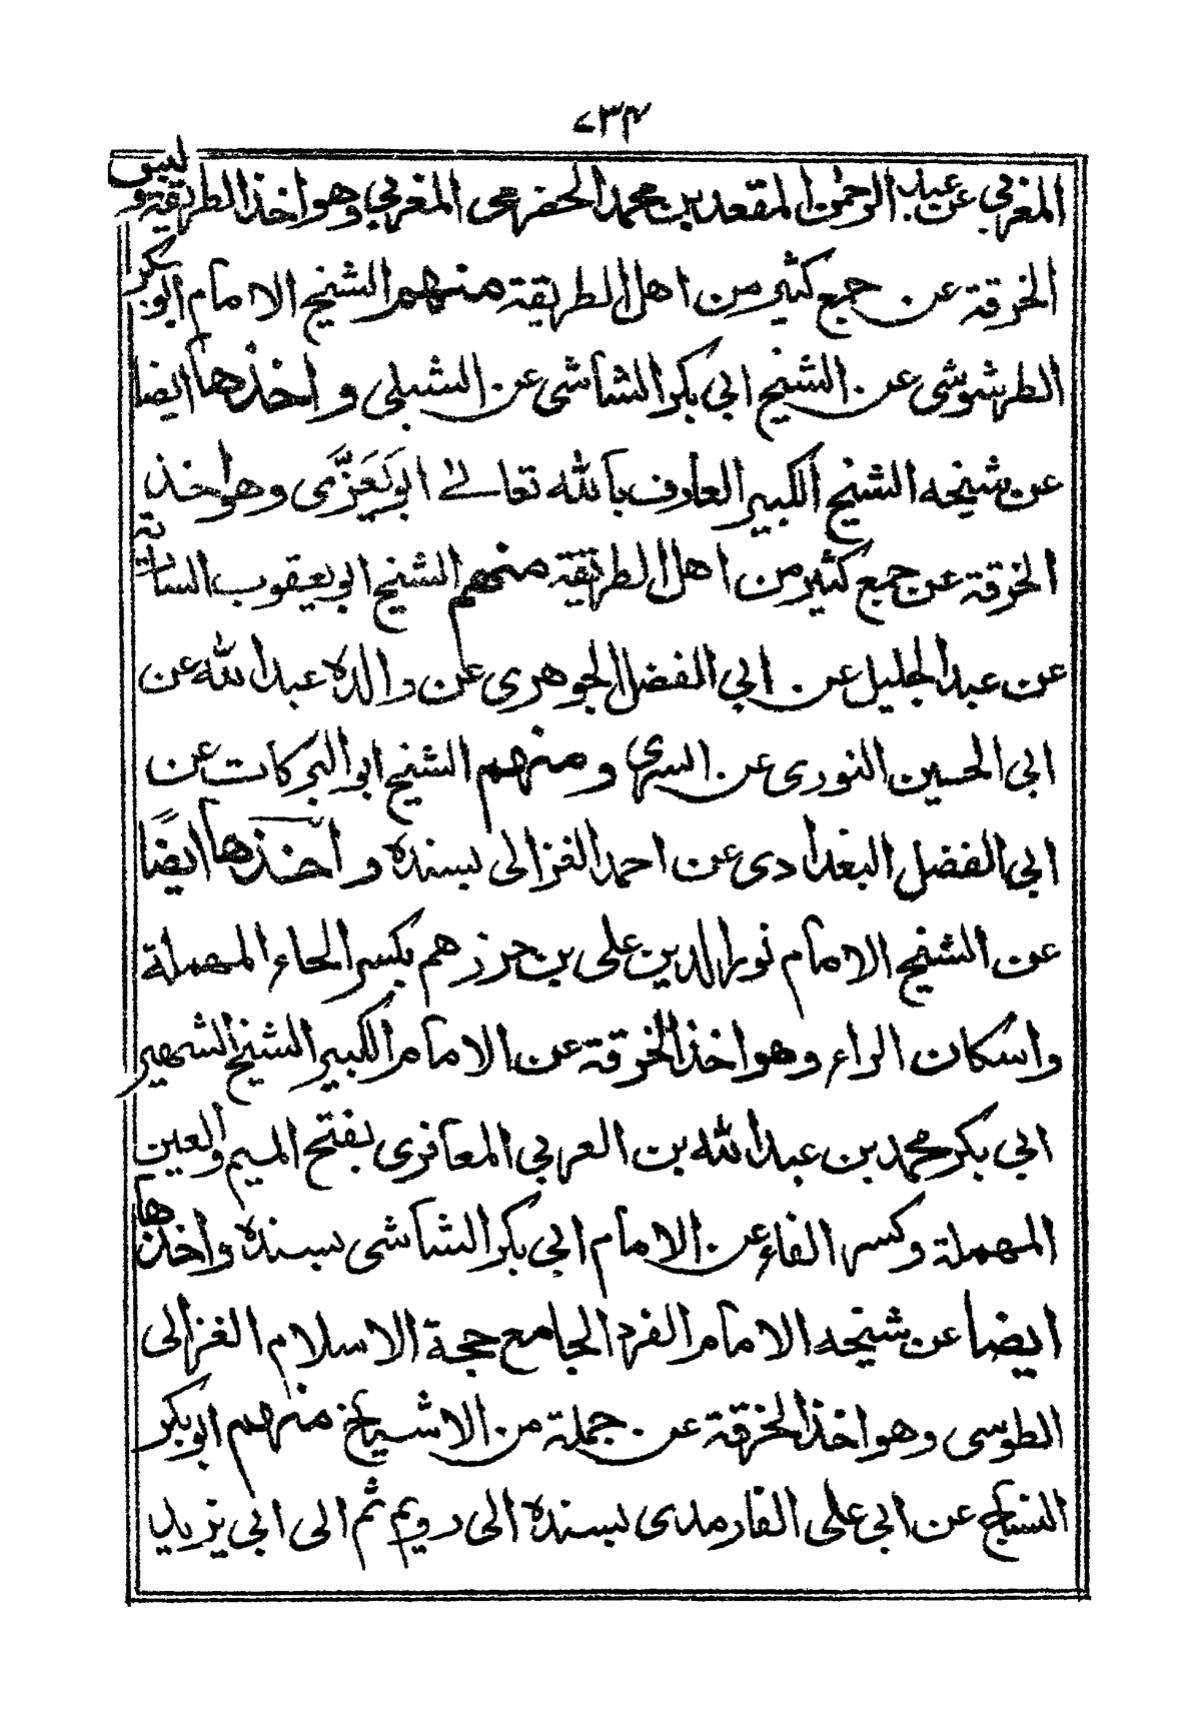 ٧٣٤
المغربي عن عبد الرحمن المقعد بن محمد الحضرمي المغربي وهو اخذ الطريقة و لبس
الخرقة عن جمع كثير من اهل الطريقة منهم الشيخ الامام ابو بكر
الطرشوشى عن الشيخ ابي بكر الشاشى عن الشبلى و اخذها ايضا
عن شيخه الشيخ الكبير العارف بالله تعالى ابو يَعَزَّى وهو اخذ
الخرقة عن جمع كثير من اهل الطريقة منهم الشيخ ابو يعقوب السارية
عن عبد الجليل عن ابي الفضل الجوهرى عن والده عبد الله عن
ابى الحسين النورى عن السري و منهم الشيخ ابو البركات عن
ابى الفضل البغدادى عن احمد الغزالى بسنده و اخذها ايضًا
عن الشيخ الامام نور الدين على بن حرزهم بكسر الحاء المهملة
واسكان الراء وهو اخذ الخرقة عن الامام الكبير الشيخ الشهير
ابي بكر محمد بن عبد الله بن العربي المعافرى بفتح الميم والعين
المهملة وكسر الفاء عن الامام ابي بكر الشاشى بسنده واخذها
ايضا عن شيخه الامام الفرد الجامع حجة الاسلام الغزالى
الطوسى وهو اخذ الخرقة عن جملة من الاشياخ منهم ابو بكر
النساج عن ابي على الفارمدى بسنده الى رويم ثم الى ابي يزيد